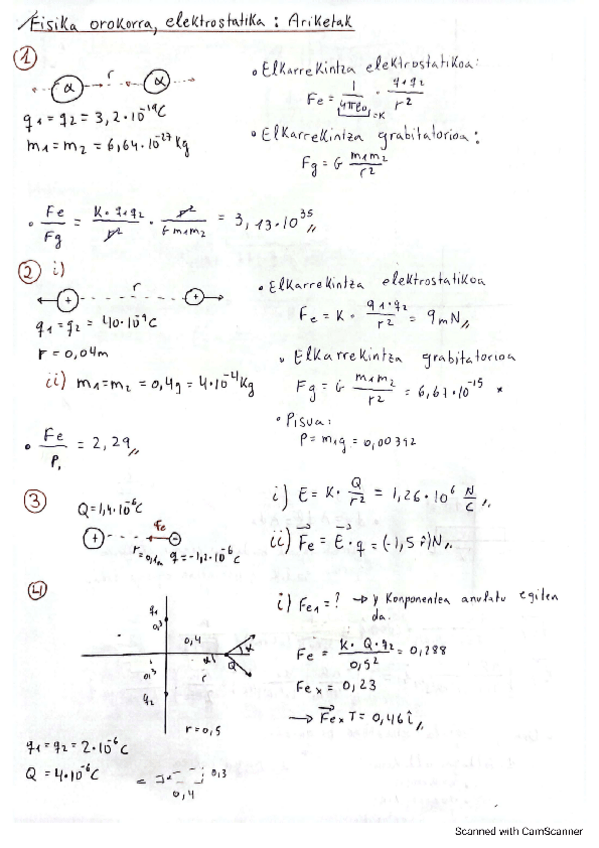 Fisika orokorra, elektrostatika : Ariketak
1
α r α
q1 = q2 = 3,2·10^-19 C
m1 = m2 = 6,64·10^-27 Kg
• Elkarrekintza elektrostatikoa:
Fe = 1/4πε0 · q1q2/r^2
=K
• Elkarrekintza grabitatorioa:
Fg = G m1m2/r^2
• Fe/Fg = K·q1q2/r^2 · r^2/G m1m2 = 3,13·10^35 //
2 i)
+ r +
q1 = q2 = 40·10^-9 C
r = 0,04m
ii) m1 = m2 = 0,4g = 4·10^-4 Kg
• Elkarrekintza elektrostatikoa
Fe = K· q1·q2/r^2 = 9mN //
• Elkarrekintza grabitatorioa
Fg = G m1m2/r^2 = 6,67·10^-15 *
• Pisua:
P = m1g = 0,00392
• Fe/P1 = 2,29 //
3
Q = 1,4·10^-6 C
+ Fe -
r=0,1m q = -1,2·10^-6 C
i) E = K· Q/r^2 = 1,26·10^6 N/C //
ii) Fe = E·q = (-1,5 î)N //
4
q1
0,3
0,4
α
Q
0,3
r
q2
r = 0,5
q1 = q2 = 2·10^-6 C
Q = 4·10^-6 C
0,3
0,4
i) Fe1 = ? → y Konponentea anulatu egiten
da.
Fe = K·Q·q2/0,5^2 = 0,288
Fex = 0,23
→ Fex T = 0,46 î //
Scanned with CamScanner